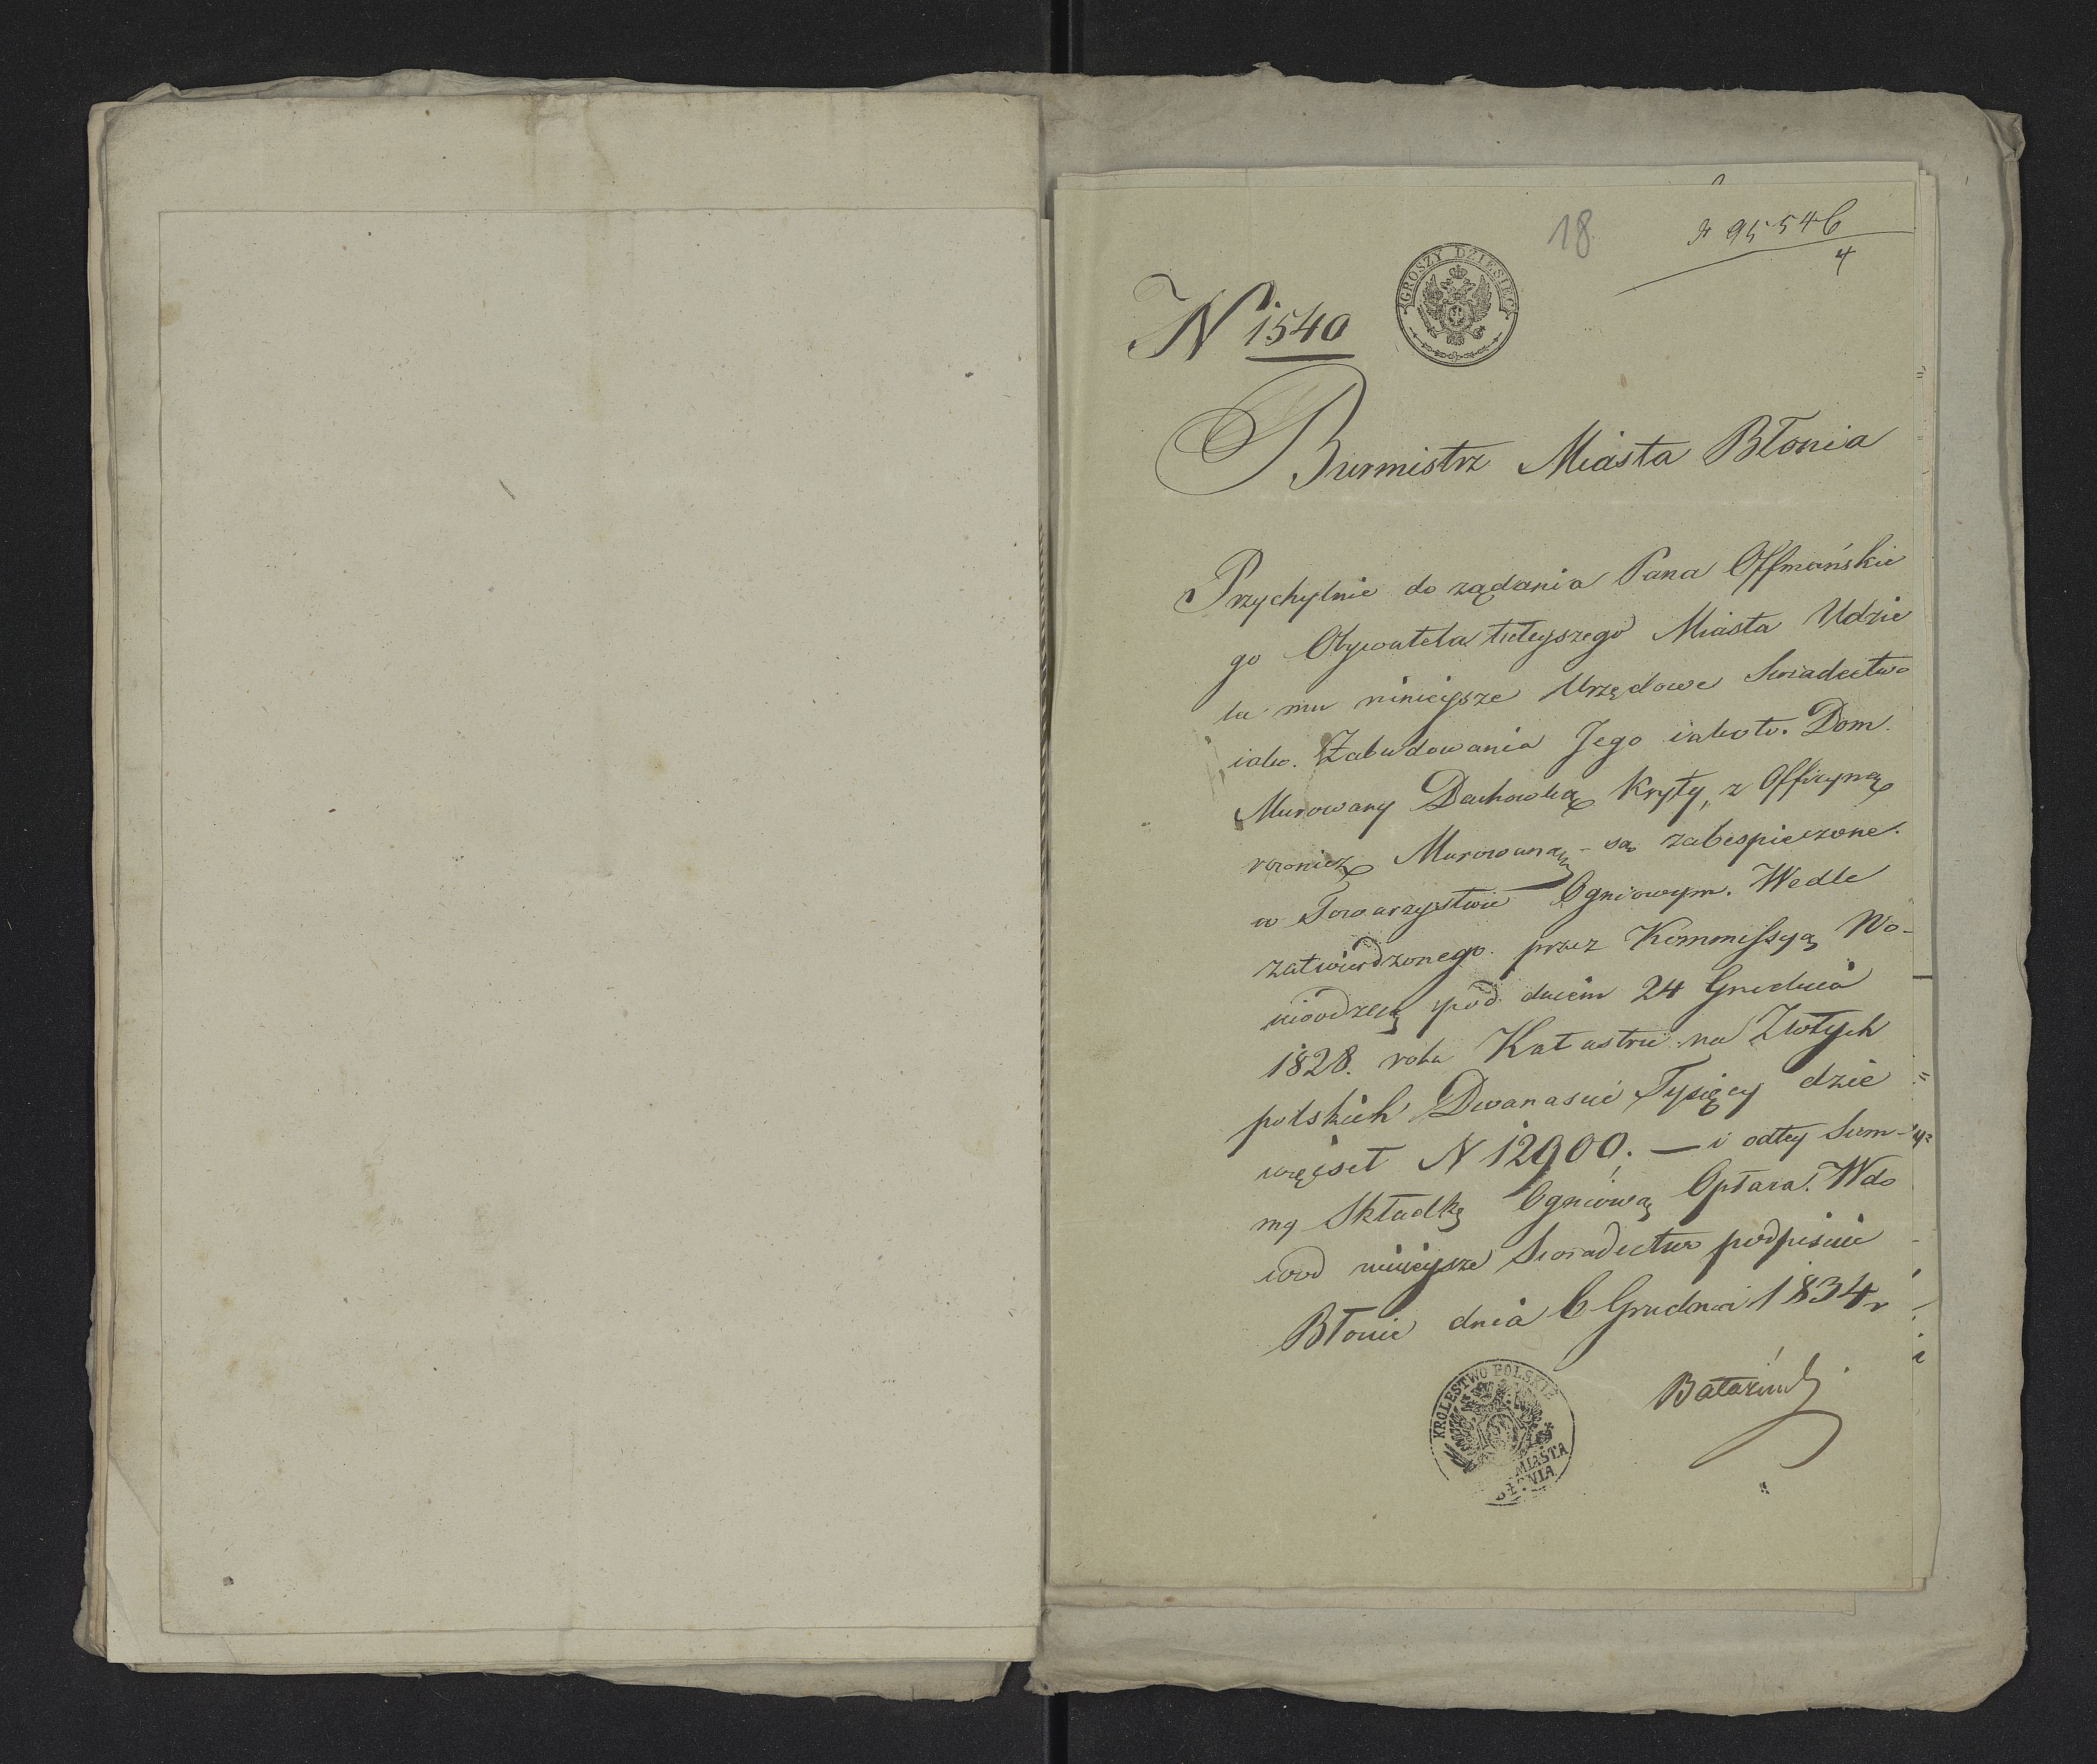 18
95546
4
GROSZY DZIESIĘĆ
N 1540
Burmistrz Miasta Błonia
Przychylnie do ządania Pana Offmańskie
go Obywatela tuteyszego Miasta Udzie
la mu ninieysze Urzędowe Swiadectwo
iako. Zabudowania Jego iakoto. Dom
Murowany Dachowką Kryty, z Officyną
rownież Murowaną - są zabespieczone.
w Towarzystwie Ogniowym. Wedle
zatwierdzonego przez Kommissyą Wo-
iewodzką pod dniem 24 Grudnia
1828. roku Katastru na Złotych
polskich Dwanascie Tysięcy dzie
więcset N 12900. — i odtey Sum-
my Składkę Ogniową Opłaca. Wdo
wod ninieysze Swiadectwo podpisuie
Błonie dnia 6 Grudnia 1834 r
KROLESTWO POLSKIE
MIASTA